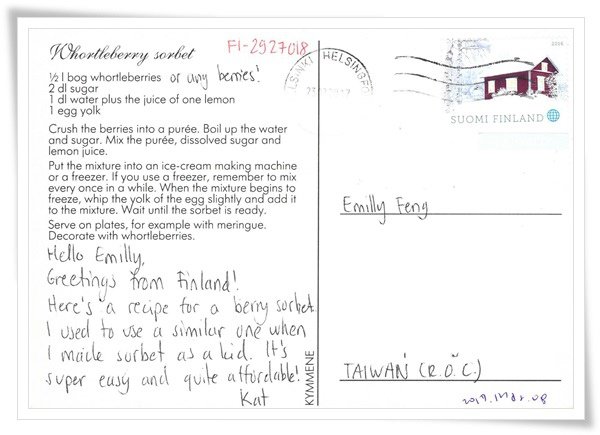 Whortleberry sorbet
FI-2927018
½ l bog whortleberries or any berries!
2 dl sugar
1 dl water plus the juice of one lemon
1 egg yolk
Crush the berries into a purée. Boil up the water
and sugar. Mix the purée, dissolved sugar and
lemon juice.
Put the mixture into an ice-cream making machine
or a freezer. If you use a freezer, remember to mix
every once in a while. When the mixture begins to
freeze, whip the yolk of the egg slightly and add it
to the mixture. Wait until the sorbet is ready.
Serve on plates, for example with meringue.
Decorate with whortleberries.
Hello Emilly,
Greetings from Finland!
Here's a recipe for a berry sorbet.
I used to use a similar one when
I made sorbet as a kid. It's
super easy and quite affordable!
Kat
KYMMENE
HELSINGFORS
2016
SUOMI FINLAND
Emilly Feng
TAIWAN (R.O.C.)